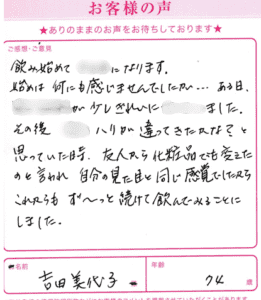 お客様の声
★ありのままのお声をお待ちしております★
ご感想・ご意見
飲み始めて になります。
始めは何にも感じませんでしたが… ある日、
が少しきれいに ました。
その後 ハリが違ってきたかな?と
思っていた時、友人から化粧品でも変えた
のと言われ 自分の見た目と同じ感覚でしたから
これからも ず〜っと続けて飲んでみることに
しました。
●名前
年齢
吉田美代子
74 歳